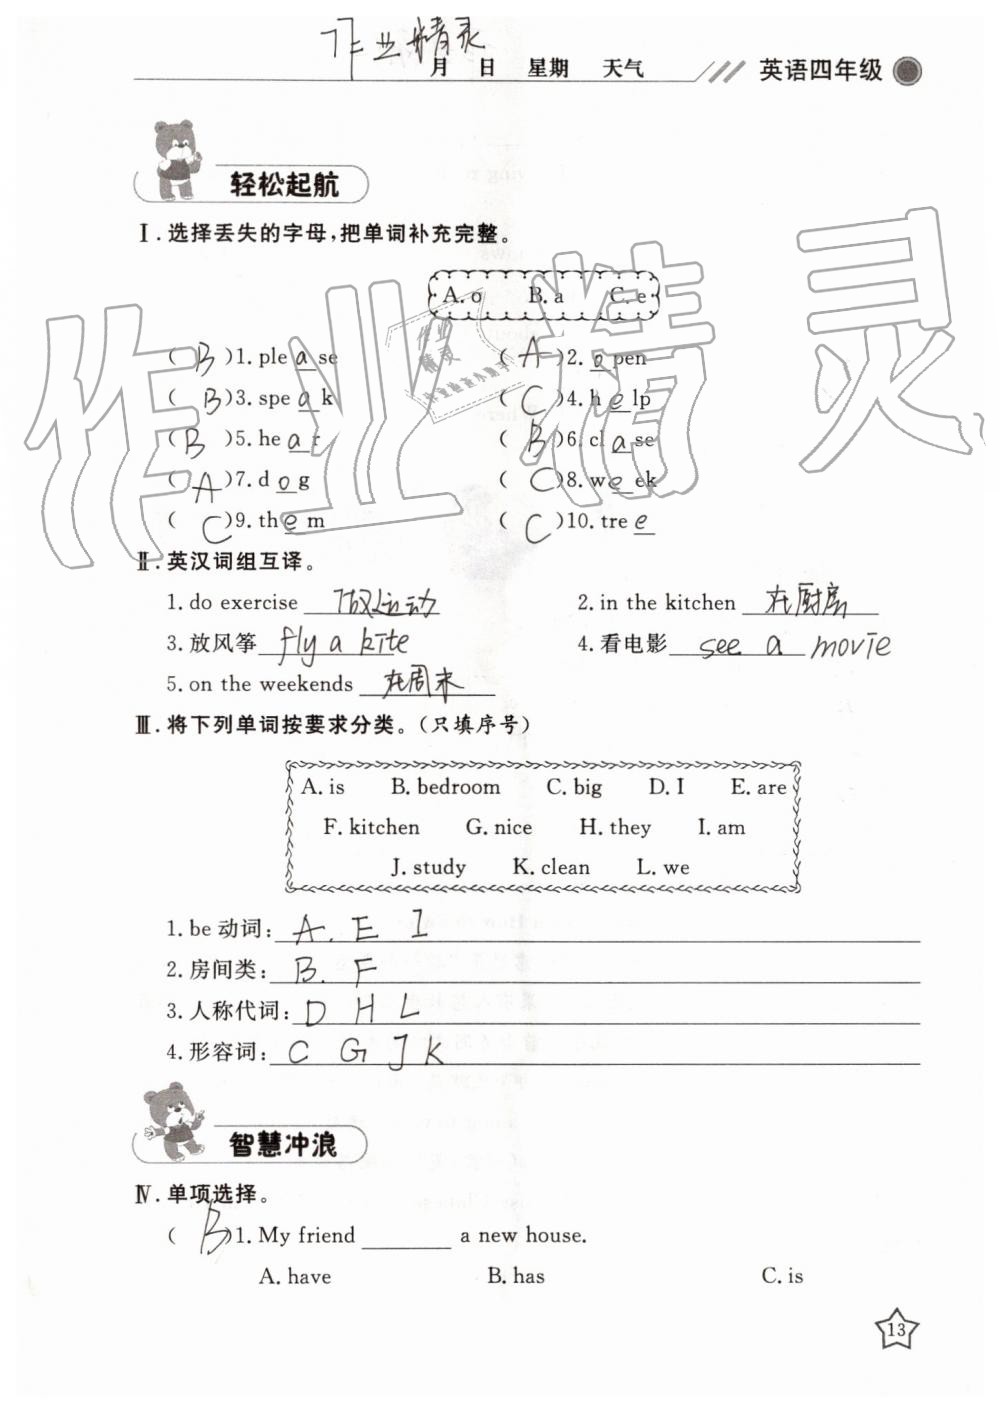 作业精灵
月 日 星期 天气 英语四年级
轻松起航
Ⅰ.选择丢失的字母,把单词补充完整。
A. o B. a C. e
( B )1. ple a se ( A )2. o pen
( B )3. spe a k ( C )4. h e lp
( B )5. he a r ( B )6. cl a se
( A )7. d o g ( C )8. w e ek
( C )9. th e m ( C )10. tre e
Ⅱ.英汉词组互译。
1. do exercise 做运动 2. in the kitchen 在厨房
3. 放风筝 fly a kite 4. 看电影 see a movie
5. on the weekends 在周末
Ⅲ.将下列单词按要求分类。(只填序号)
A. is B. bedroom C. big D. I E. are
F. kitchen G. nice H. they I. am
J. study K. clean L. we
1. be 动词: A. E I
2. 房间类: B. F
3. 人称代词: D H L
4. 形容词: C G J K
智慧冲浪
Ⅳ.单项选择。
( B )1. My friend ________ a new house.
A. have B. has C. is
13
作业精灵
作业
精灵